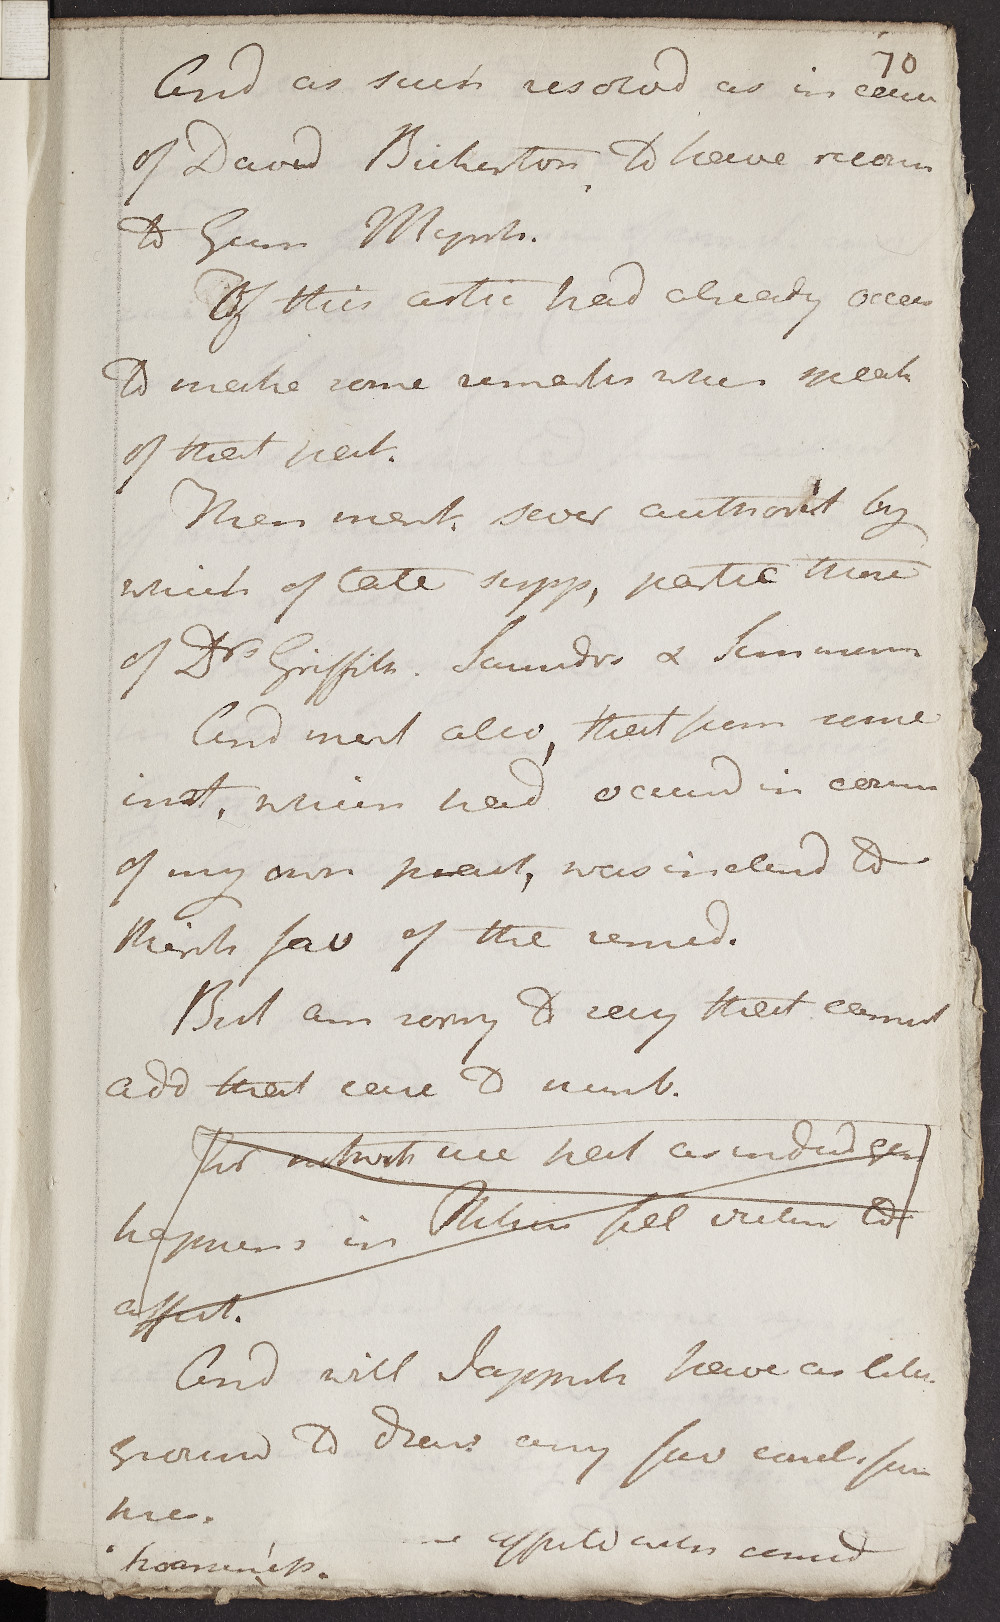 70
And as such resolvd as in case
of David Bickerton, to have recour
to Gum Myrrh.
Of this artic had already occas
to make some remarks when speak
of that pat.
Then ment. sever authorit by
which of late supp, partic those
of Drs Griffith. Saunders & Simmons
And ment also, that from some
inst, which had occurd in course
of my own pract, was inclind to
think fav of the remed.
But am sorry to say that cannot
add that case to numb.
for notwith use pect as indeed gen
happens in Phthisis fell victim to
affect.
And will I appreh have as litt
ground to draw any fav concl. from
his.
hoarseness. affected with consid